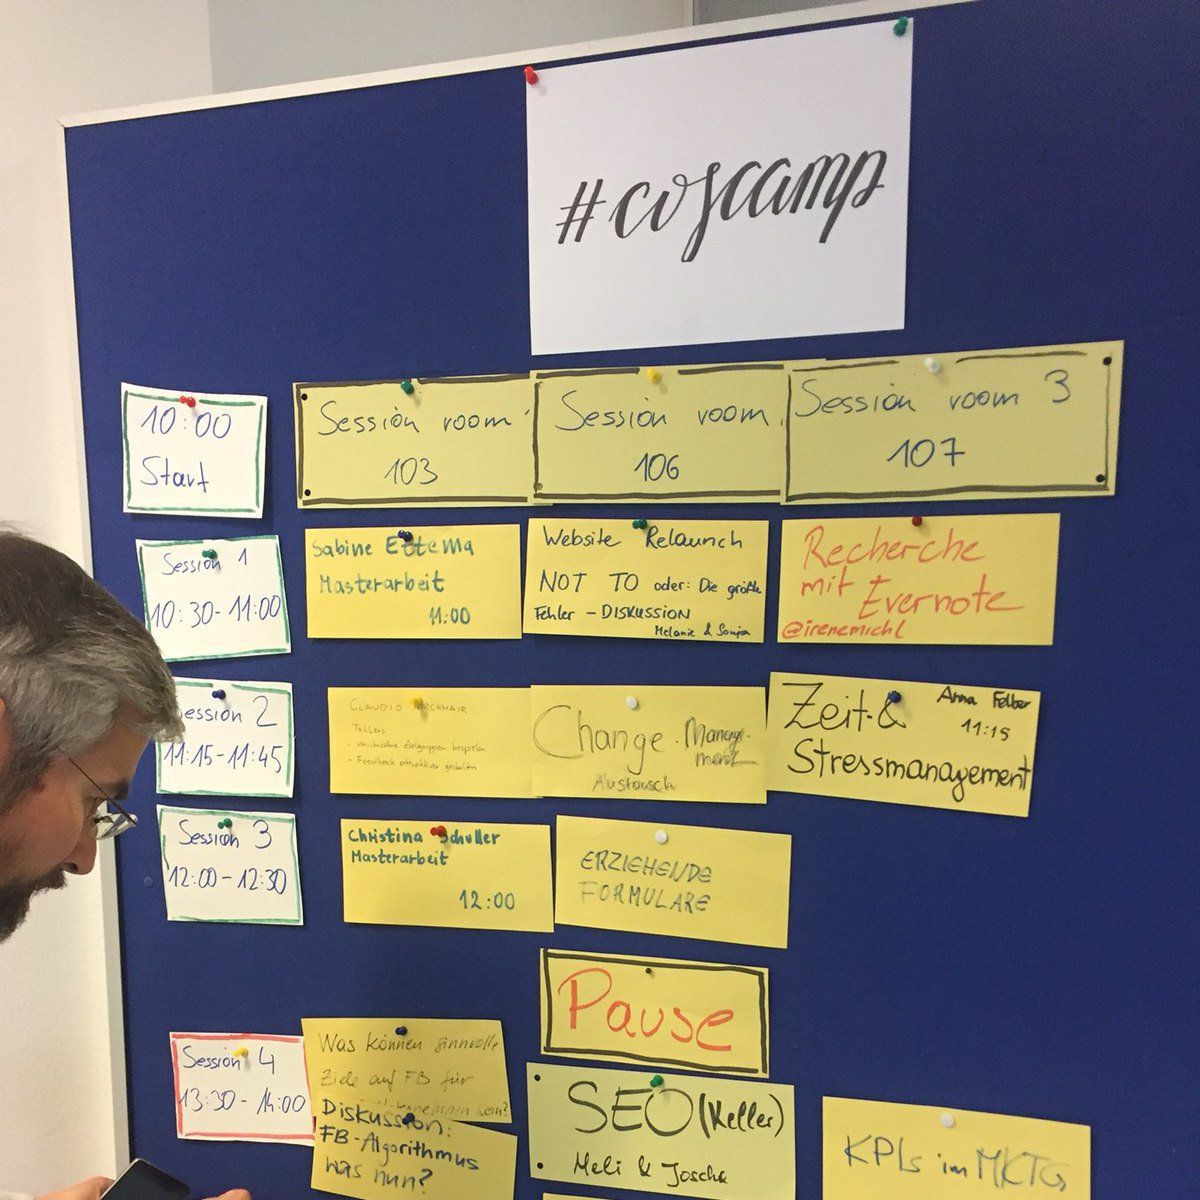 #coscamp
10:00
Start
Session room
103
Session room
106
Session room 3
107
Session 1
10:30-11:00
Sabine Ettema
Masterarbeit
11:00
Website Relaunch
NOT TO oder: Die größte
Fehler - DISKUSSION
Melanie & Sonja
Recherche
mit Evernote
@irenemichl
Session 2
11:15-11:45
CLAUDIO
- Feedback attraktiver gestalten
Change Manage-
ment
Austausch
Zeit- &
Stressmanagement
Anna Felber
11:15
Session 3
12:00-12:30
Christina Schuller
Masterarbeit
12:00
ERZIEHENDE
FORMULARE
Pause
Session 4
13:30-14:00
Was können sinnvolle
Ziele auf FB für
sein?
Diskussion:
FB-Algorithmus
was nun?
SEO (Keller)
Meli & Joscha
KPIs im MKTG